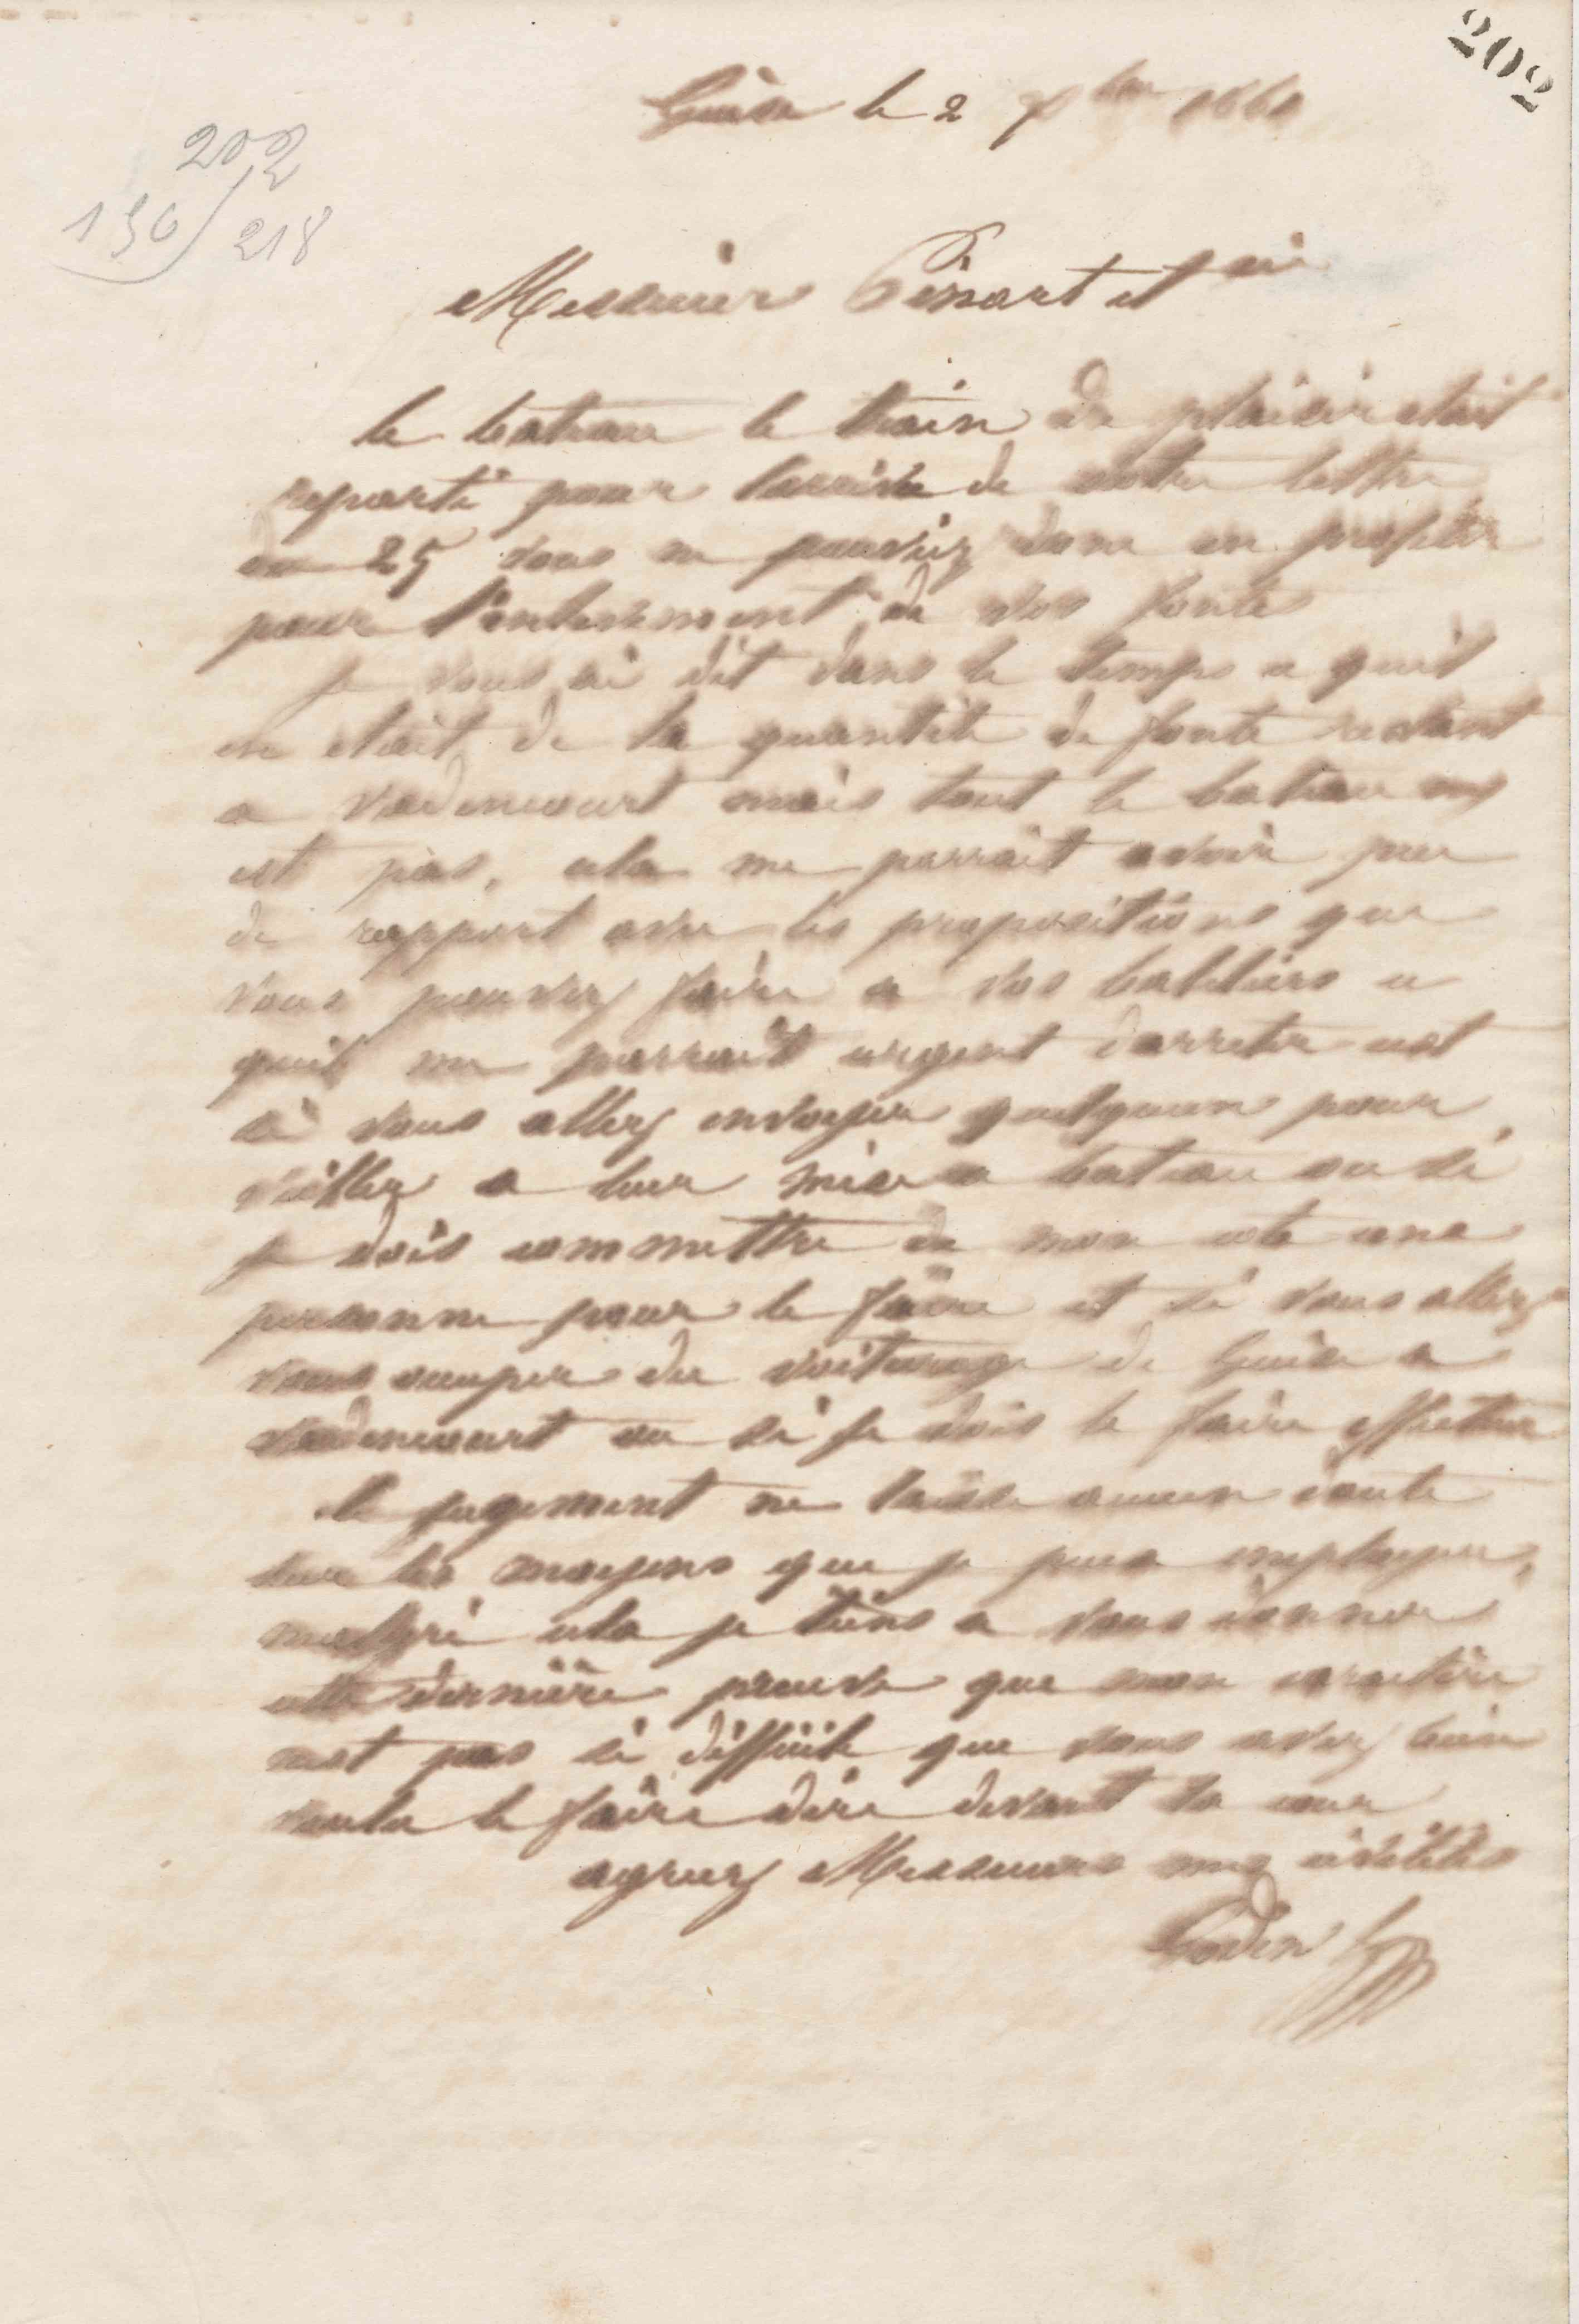 202
202
130/218
Guise le 2 7bre 1860
Messieurs Pinart et cie
le bateau le train de plaisir etait
reparti pour larrivée de votre lettre
du 25 vous ne pouviez donc en profiter
pour l'enlevement de vos fonte
je vous ai dit dans le temps ce quil
en etait de la quantité de fonte restant
a vadencourt mais tout le bateau ny
est pas, cela me parrait avoir peu
de rapport avec les propositions que
vous pouvez faire a vos batteliers ce
quil me parrait urgent darreter cest
si vous allez envoyer quelquun pour
veiller a leur mise a bateau ou si
je dois commettre de mon coté une
personne pour le faire et si vous allez
vous occuper du voiturage de Guise a
vadencourt ou si je dois le faire effectuer
le jugement ne laisse aucun doute
sur les moyens que je puis employer,
malgré cela je tiens a vous donner
cette dernière preuve que mon caractère
nest pas si difficile que vous avez bien
voulu le faire dire devant la cour
agreez Messieurs mes civilités
Godin